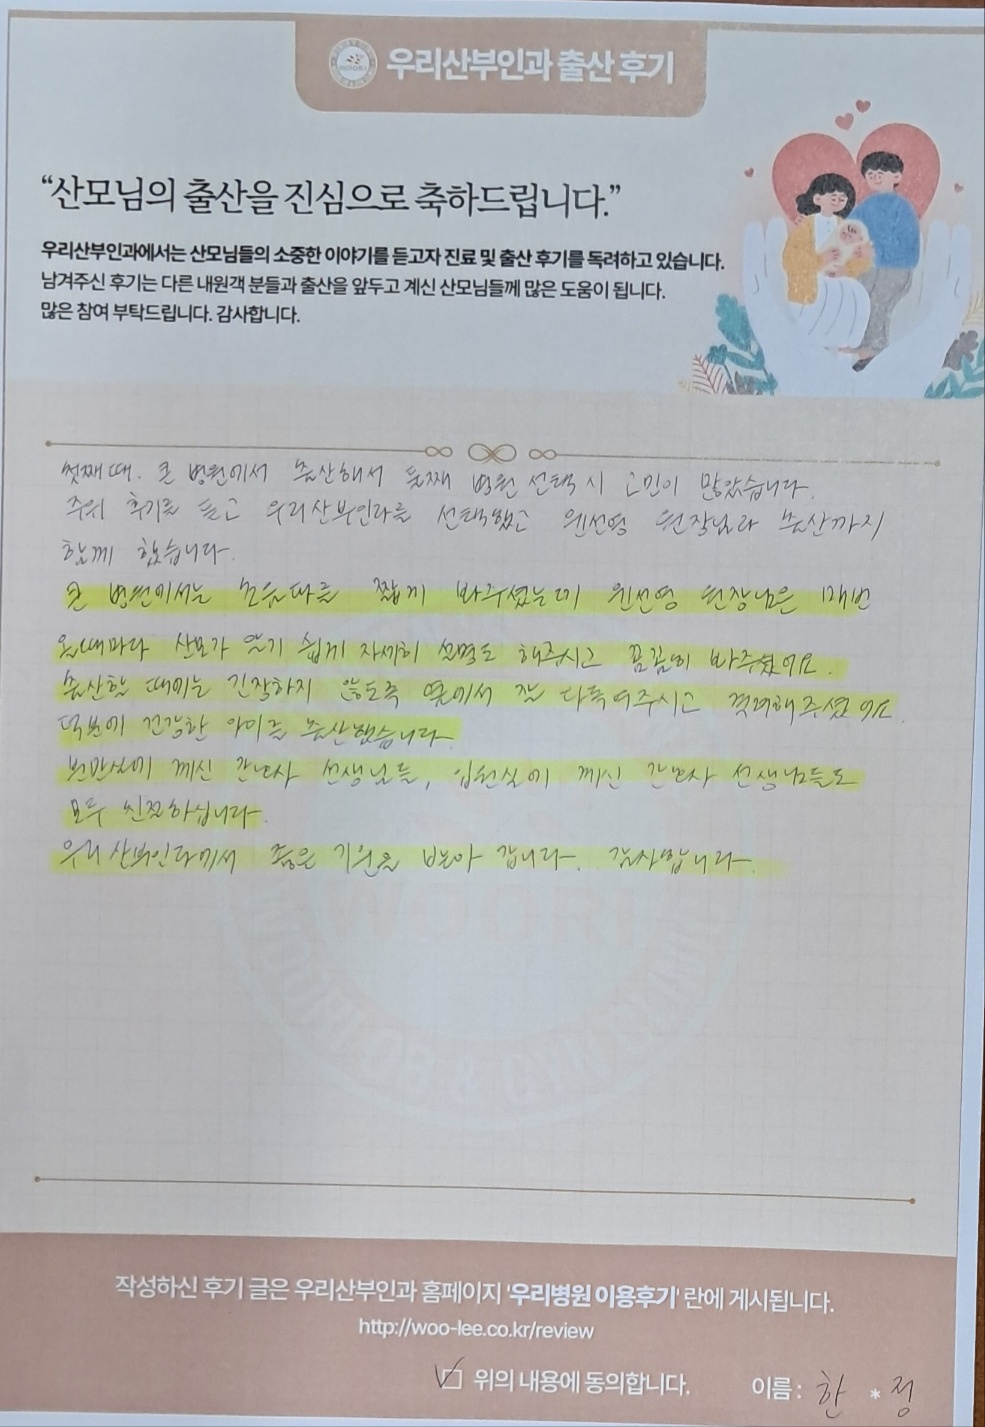 우리산부인과 출산 후기
“산모님의 출산을 진심으로 축하드립니다.”
우리산부인과에서는 산모님들의 소중한 이야기를 듣고자 진료 및 출산 후기를 독려하고 있습니다.
남겨주신 후기는 다른 내원객 분들과 출산을 앞두고 계신 산모님들께 많은 도움이 됩니다.
많은 참여 부탁드립니다. 감사합니다.
첫째 때. 큰 병원에서 출산해서 둘째 병원 선택 시 고민이 많았습니다.
주위 후기를 듣고 우리산부인과를 선택했고 원선영 원장님과 출산까지
함께 했습니다.
큰 병원에서는 초음파를 짧게 봐주셨는데 원선영 원장님은 매번
올때마다 산모가 알기 쉽게 자세히 설명도 해주시고 꼼꼼히 봐주셨어요.
출산할 때에는 긴장하지 않도록 옆에서 잘 다독여주시고 격려해주셨어요.
덕분에 건강한 아이를 출산했습니다.
분만실에 께신 간호사 선생님들, 입원실에 께신 간호사 선생님들도
모두 친절하십니다.
우리산부인과에서 좋은 기운을 받아 갑니다. 감사합니다.
작성하신 후기 글은 우리산부인과 홈페이지 '우리병원 이용후기' 란에 게시됩니다.
http://woo-lee.co.kr/review
위의 내용에 동의합니다. 이름 : 한 * 정